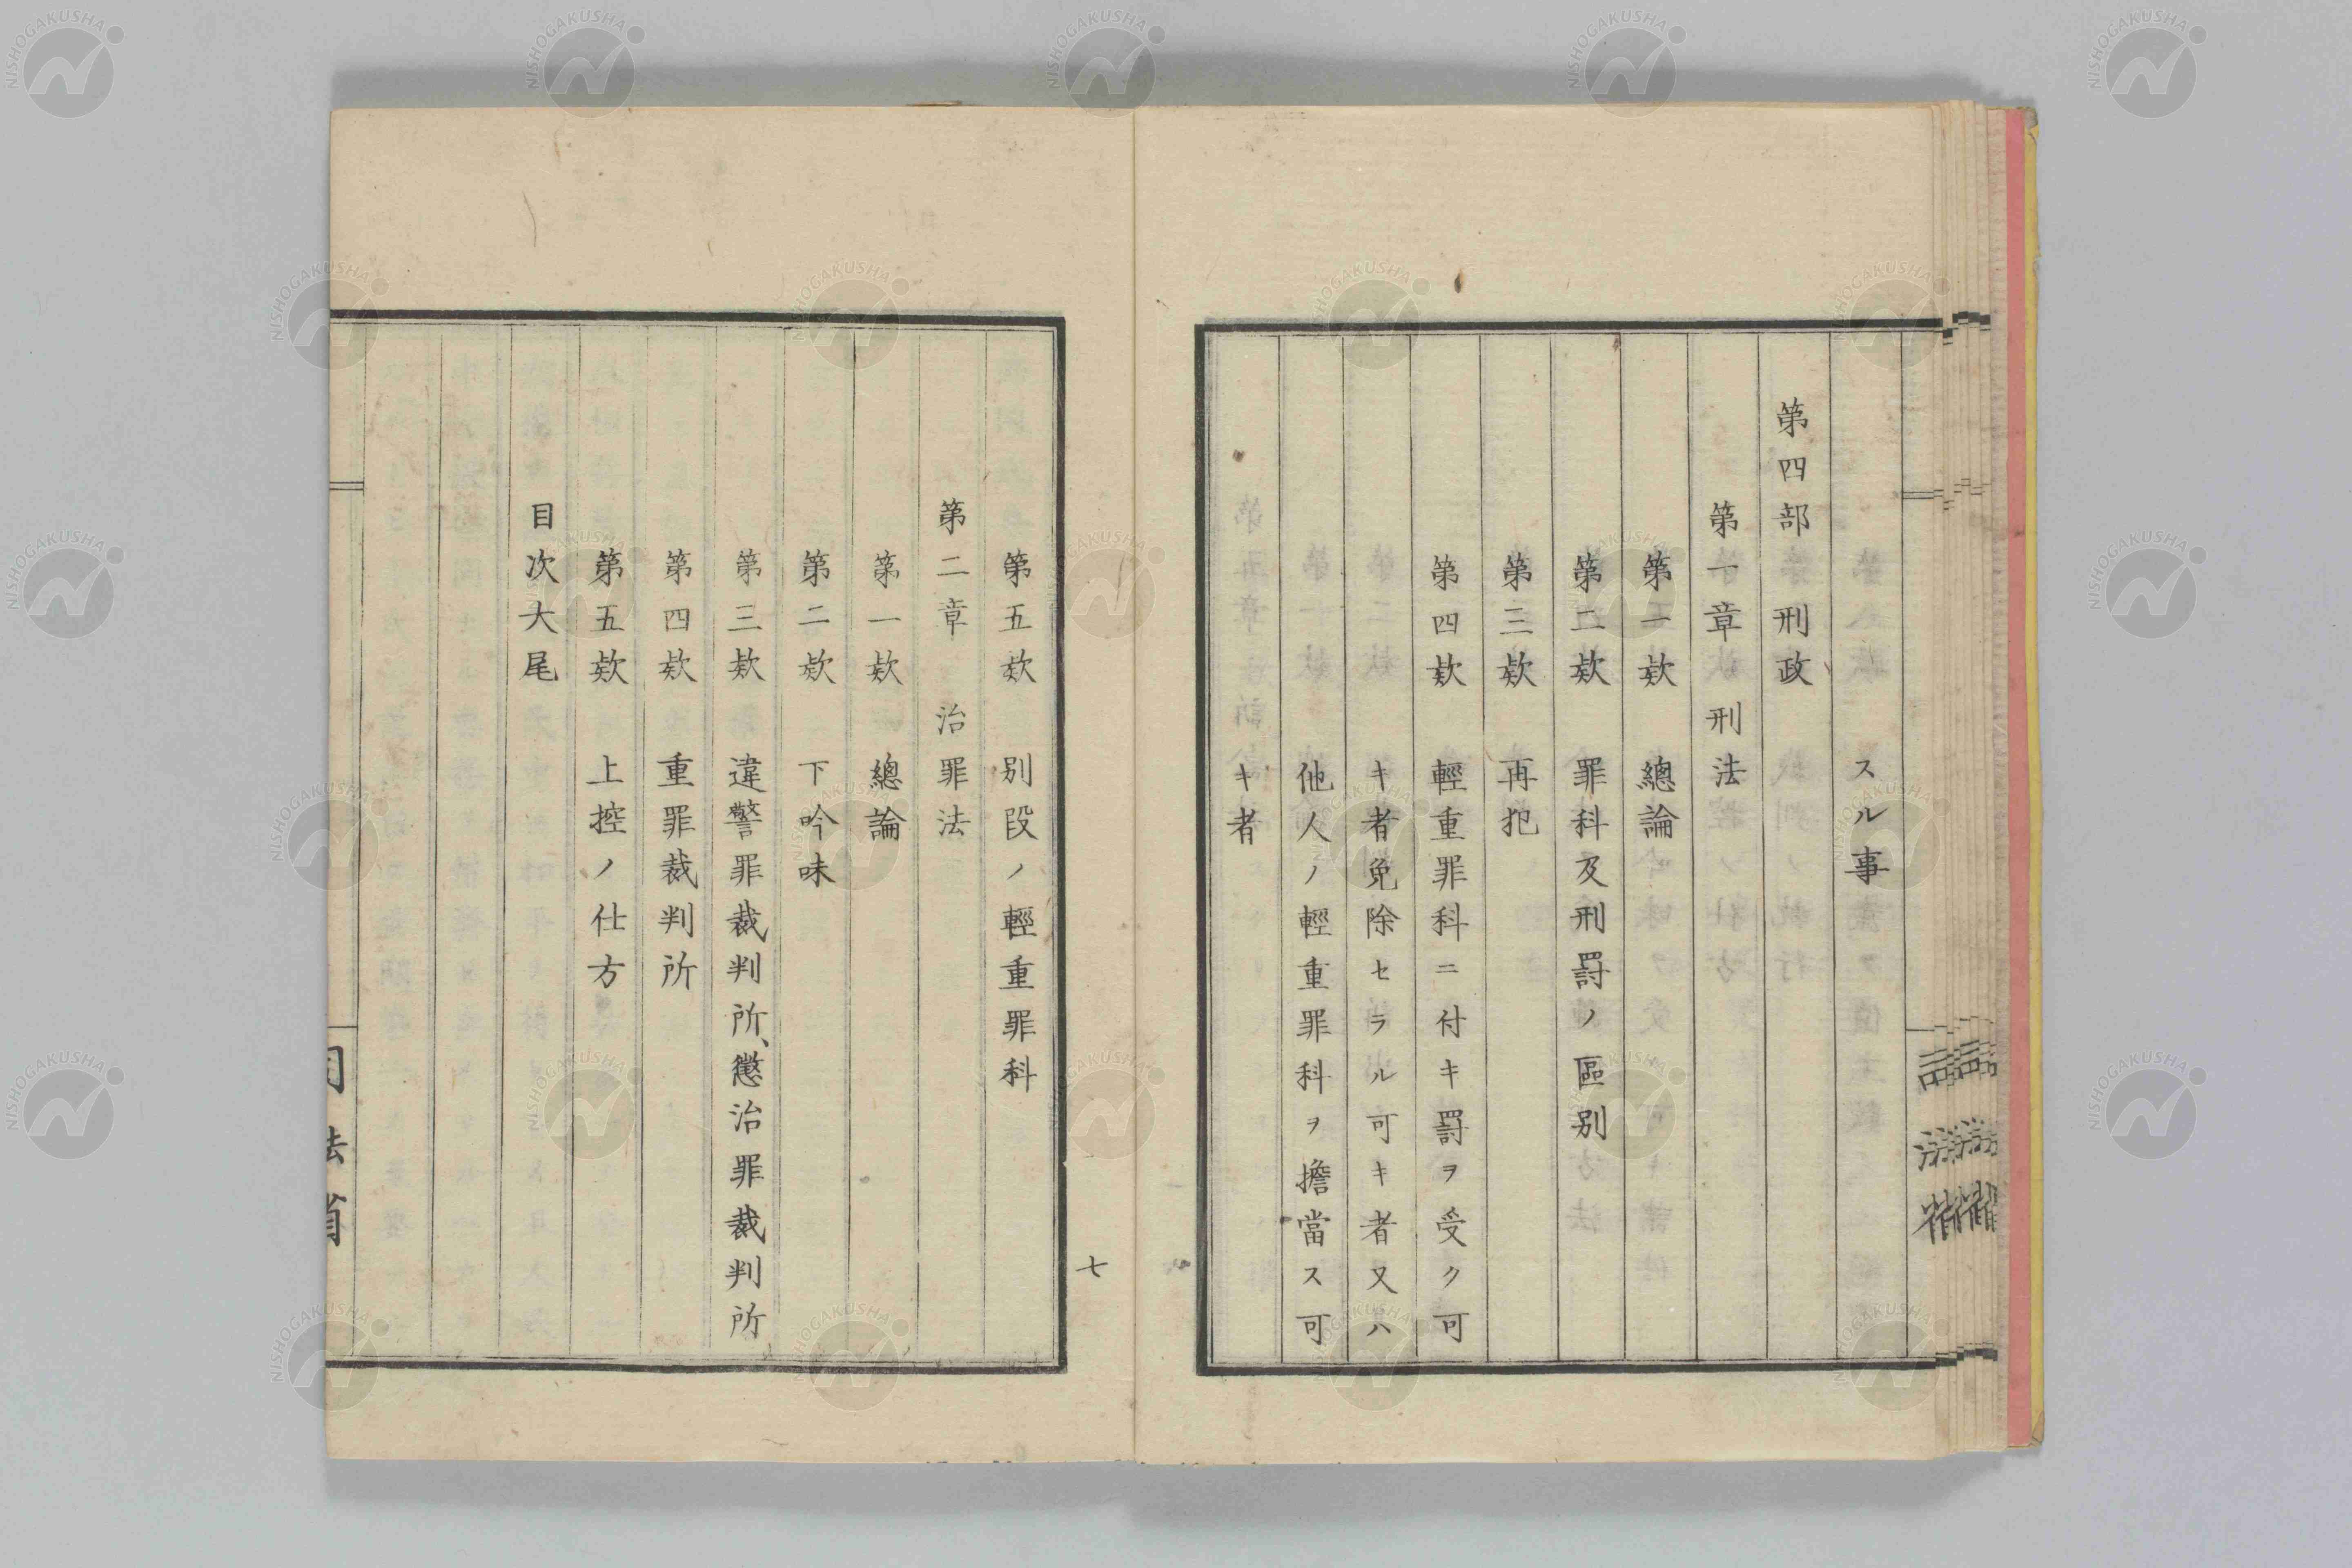 スル事
第四部 刑政
第一章 刑法
第一欵 總論
第二欵 罪科及刑罰ノ區別
第三欵 再犯
第四欵 輕重罪科ニ付キ罰ヲ受ク可
キ者免除セラル可キ者又ハ
他人ノ輕重罪科ヲ擔當ス可
キ者
第五欵 別段ノ輕重罪科
第二章 治罪法
第一欵 總論
第二欵 下吟味
第三欵 違警罪裁判所、懲治罪裁判所
第四欵 重罪裁判所
第五欵 上控ノ仕方
目次大尾
七
NISHOGAKUSHA